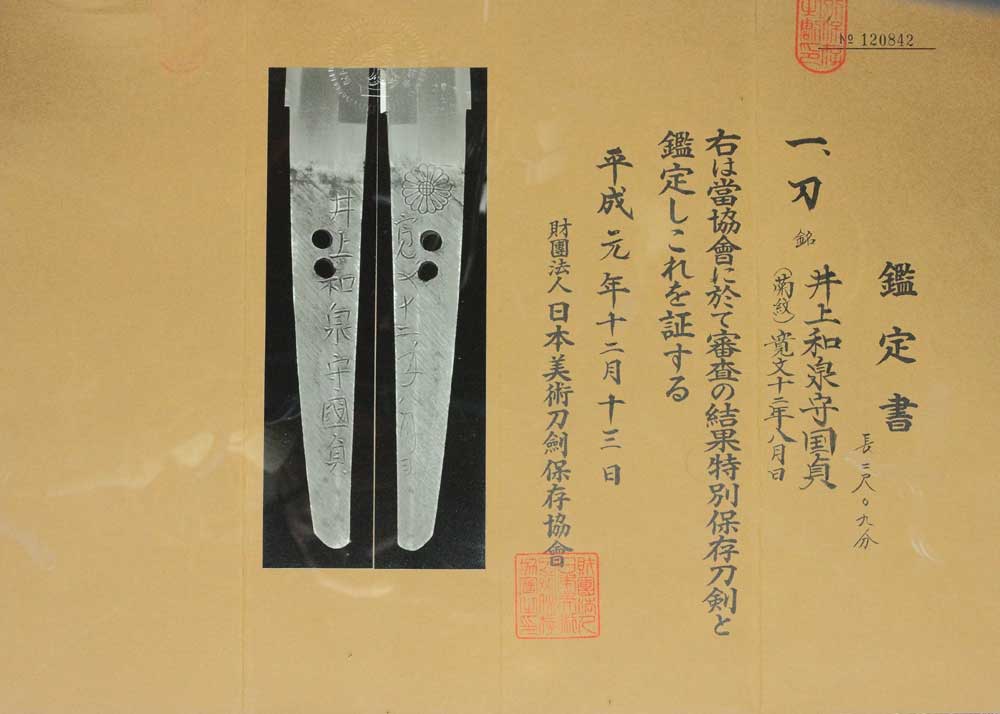 № 120842
鑑定書
長二尺〇九分
一、刀 銘 井上和泉守国貞
（菊紋）寛文十二年八月日
右は當協會に於て審査の結果特別保存刀剣と
鑑定しこれを証する
平成元年十二月十三日
財團法人日本美術刀劍保存協會
寛文十二年八月日
井上和泉守國貞